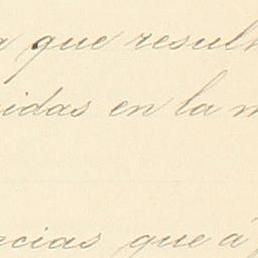 a que result
idas en la m
rcias que á